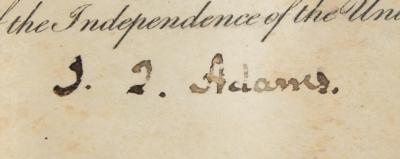 f the Independence of the Uni
J. Q. Adams.